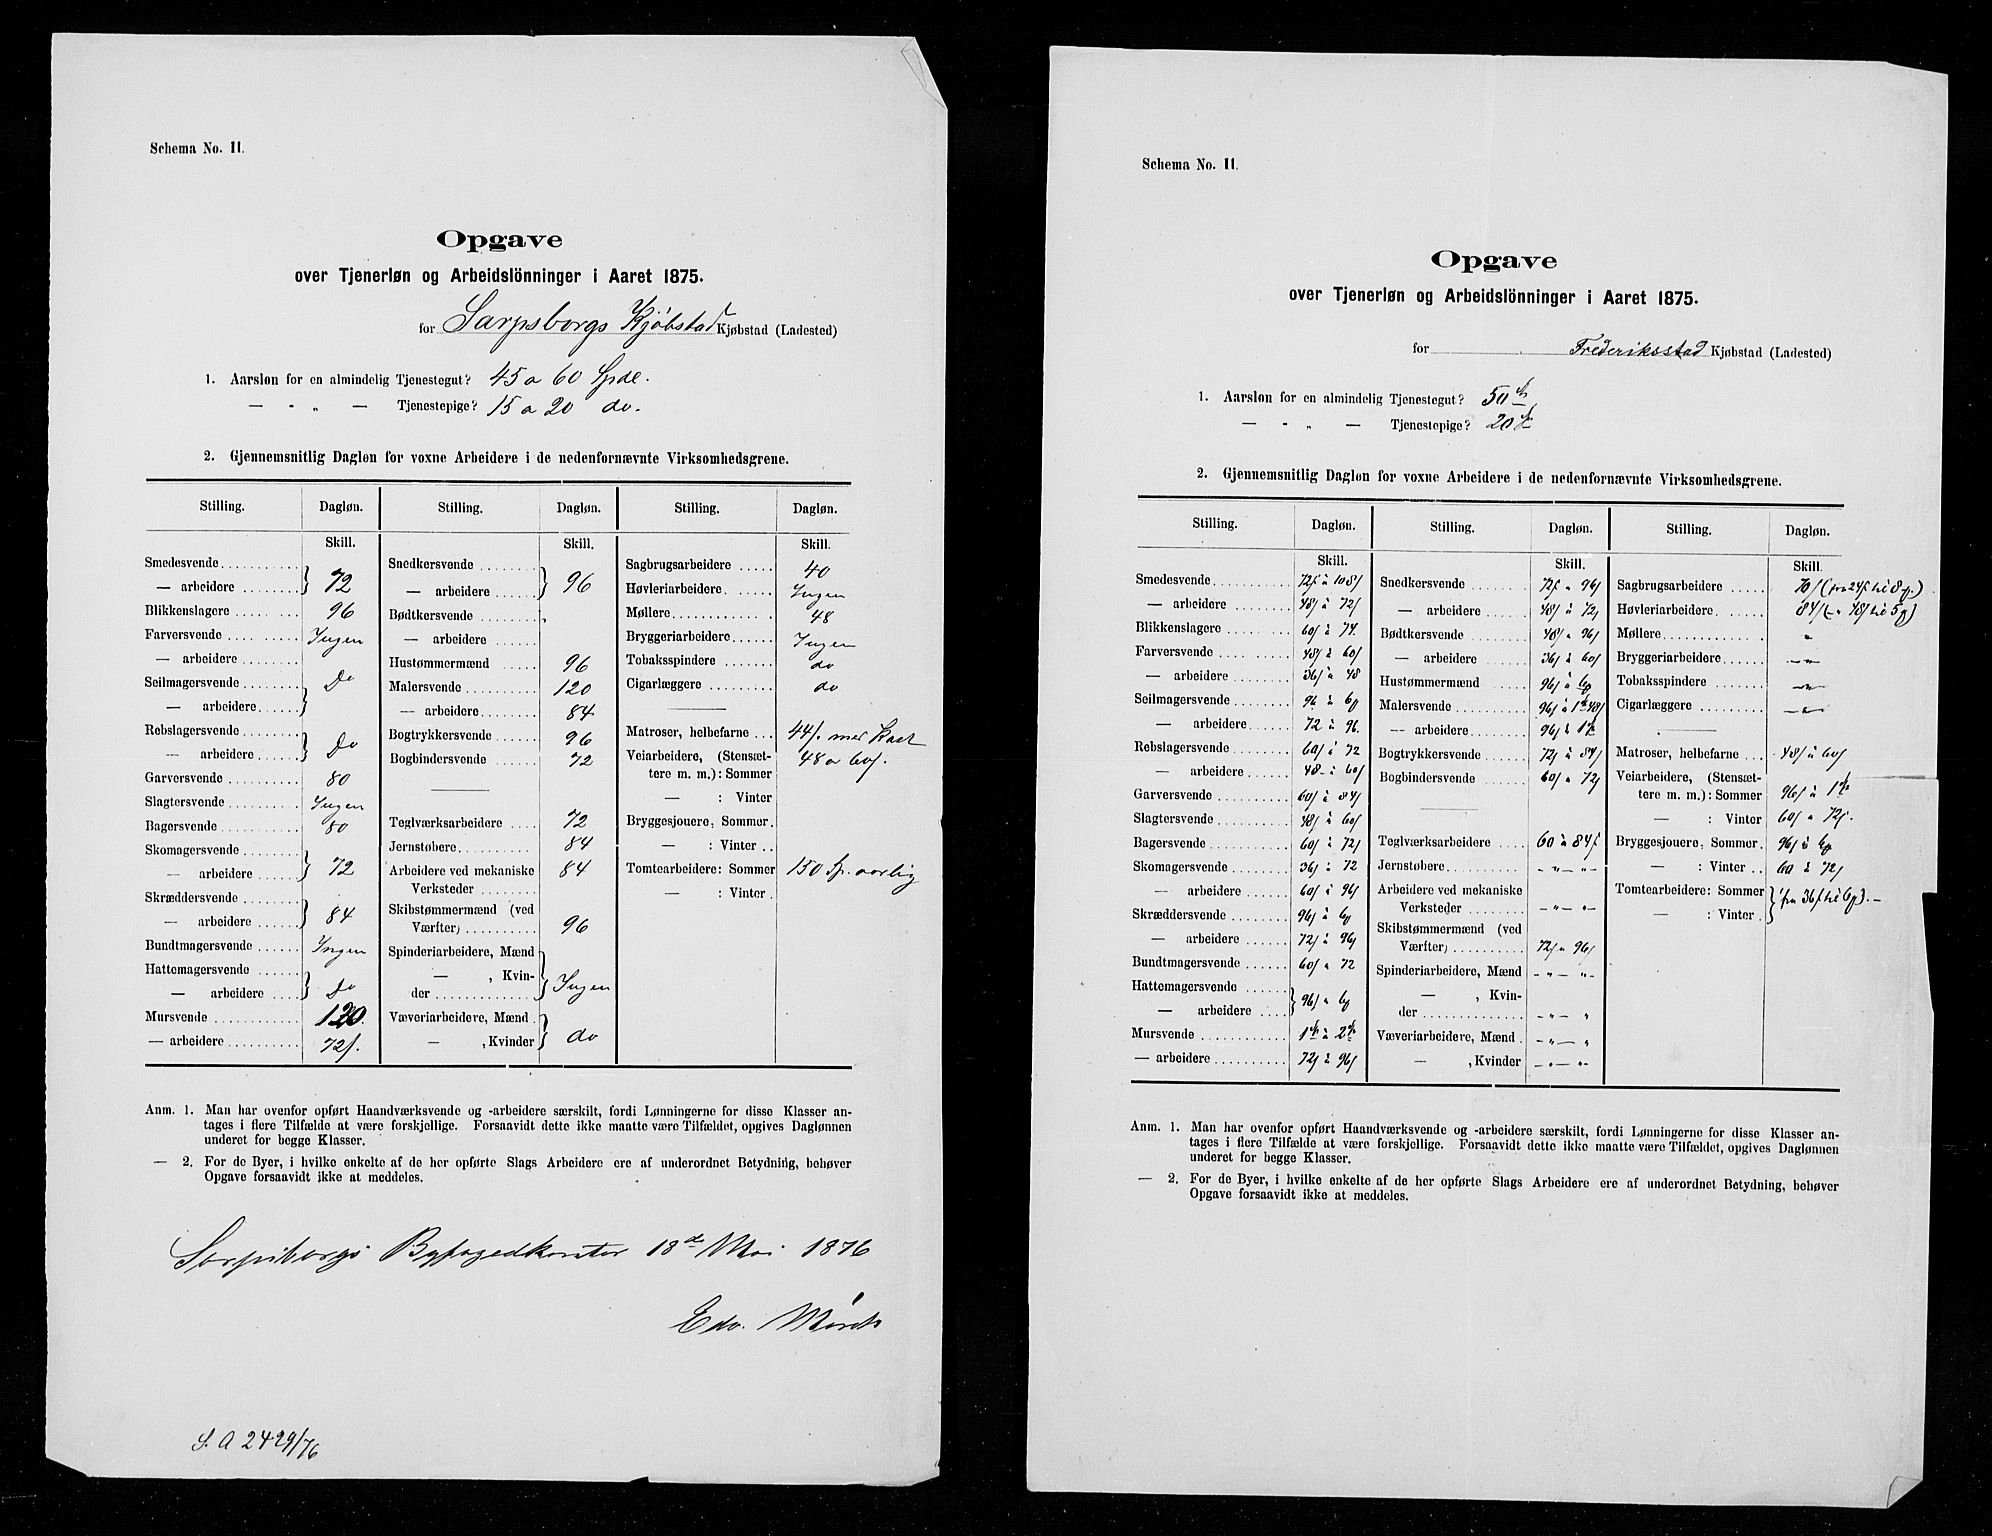 Schema No. 11.
Opgave
over Tjenerløn og Arbeidslönninger i Aaret 1875.
for Sarpsborgs Kjøbstad Kjøbstad (Ladested)
1. Aarsløn for en almindelig Tjenestegut? 45 a 60 Spdl.
— " „ — Tjenestepige? 15 a 20 do.
2. Gjennemsnitlig Dagløn for voxne Arbeidere i de nedenfornævnte Virksomhedsgrene.
Stilling. Dagløn. Stilling. Dagløn. Stilling. Dagløn.
Skill. Skill. Skill.
Smedesvende
— arbeidere } 72
Blikkenslagere 96
Farversvende Ingen
— arbeidere
Seilmagersvende Do
— arbeidere }
Rebslagersvende
— arbeidere } Do
Garversvende 80
Slagtersvende Ingen
Bagersvende 80
Skomagersvende
— arbeidere } 72
Skræddersvende
— arbeidere } 84
Bundtmagersvende Ingen
Hattemagersvende
— arbeidere } Do
Mursvende 120.
— arbeidere 72/.
Snedkersvende
— arbeidere } 96
Bødtkersvende
— arbeidere
Hustømmermænd 96
Malersvende 120
— arbeidere 84
Bogtrykkersvende 96
Bogbindersvende 72
Teglværksarbeidere 72
Jernstøbere 84
Arbeidere ved mekaniske
Verksteder 84
Skibstømmermænd (ved
Værfter) 96
Spinderiarbeidere, Mænd
— , Kvin-
der } Ingen
Væveriarbeidere, Mænd
— , Kvinder } do
Sagbrugsarbeidere 40
Høvleriarbeidere Ingen
Møllere 48
Bryggeriarbeidere Ingen
Tobaksspindere do
Cigarlæggere do
Matroser, helbefarne 44/. mer Kost
Veiarbeidere, (Stensæt- 48 a 60/.
tere m. m.): Sommer
— : Vinter
Bryggesjouere, Sommer.
— : Vinter
Tomtearbeidere: Sommer 150 Sp. aarlig
— : Vinter
Anm. 1. Man har ovenfor opført Haandværksvende og -arbeidere særskilt, fordi Lønningerne for disse Klasser an-
tages i flere Tilfælde at være forskjellige. Forsaavidt dette ikke maatte være Tilfældet, opgives Daglønnen
underet for begge Klasser.
— 2. For de Byer, i hvilke enkelte af de her opførte Slags Arbeidere ere af underordnet Betydning, behøver
Opgave forsaavidt ikke at meddeles.
Sarpsborgs Byfogedkontor 18de Mai 1876
Edv. Mørch
S. A 2429/76
Schema No. 11.
Opgave
over Tjenerløn og Arbeidslönninger i Aaret 1875.
for Frederiksstad Kjøbstad (Ladested)
1. Aarsløn for en almindelig Tjenestegut? 50
— " „ — Tjenestepige? 20
2. Gjennemsnitlig Dagløn for voxne Arbeidere i de nedenfornævnte Virksomhedsgrene.
Stilling. Dagløn. Stilling. Dagløn. Stilling. Dagløn.
Skill. Skill. Skill.
Smedesvende 72/ à 108/
— arbeidere 48/ à 72/
Blikkenslagere 60/ à 74.
Farversvende 48/ à 60/
— arbeidere 36/ à 48
Seilmagersvende 96 à
— arbeidere 72 à 96
Rebslagersvende 60/ à 72
— arbeidere 48 à 60/
Garversvende 60/ à 84/
Slagtersvende 48/ à 60/
Bagersvende 60/ à 72/
Skomagersvende 36/ à 72
— arbeidere 60/ à 96/
Skræddersvende 96/ à
— arbeidere 72/ à 96/
Bundtmagersvende 60/ à 72
Hattemagersvende
— arbeidere } 96/ à
Mursvende 1 à 2
— arbeidere 72/ à 96/
Snedkersvende 72/ à 96/
— arbeidere 48/ à 72/
Bødtkersvende 48/ à 96/
— arbeidere 36/ à 60/
Hustømmermænd 96/ à
Malersvende 96/ à 1 48/
— arbeidere 96/ à 1
Bogtrykkersvende 72/ à 84/
Bogbindersvende 60/ à 72/
Teglværksarbeidere 60 à 84/
Jernstøbere -"- -"-
Arbeidere ved mekaniske
Verksteder -"- -"-
Skibstømmermænd (ved
Værfter) 72/ à 96/
Spinderiarbeidere, Mænd -"- "-
— , Kvin-
der -"- "
Væveriarbeidere, Mænd -"- "
— , Kvinder -"- "-
Sagbrugsarbeidere 70/ (fra 24/ til 8)
Høvleriarbeidere 84/ (" 48/ til 5)
Møllere "
Bryggeriarbeidere -"-
Tobaksspindere -"-
Cigarlæggere -"-
Matroser, helbefarne 48/ à 60/
Veiarbeidere, (Stensæt-
tere m. m.): Sommer 96/ à 1
— : Vinter 60/ à 72/.
Bryggesjouere, Sommer. 96/ à
— : Vinter 60 à 72/
Tomtearbeidere: Sommer
— : Vinter } fra 36/ til
Anm. 1. Man har ovenfor opført Haandværksvende og -arbeidere særskilt, fordi Lønningerne for disse Klasser an-
tages i flere Tilfælde at være forskjellige. Forsaavidt dette ikke maatte være Tilfældet, opgives Daglønnen
underet for begge Klasser.
— 2. For de Byer, i hvilke enkelte af de her opførte Slags Arbeidere ere af underordnet Betydning, behøver
Opgave forsaavidt ikke at meddeles.